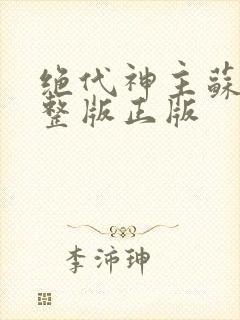 绝代神主蘇
整版正版
李沛珅